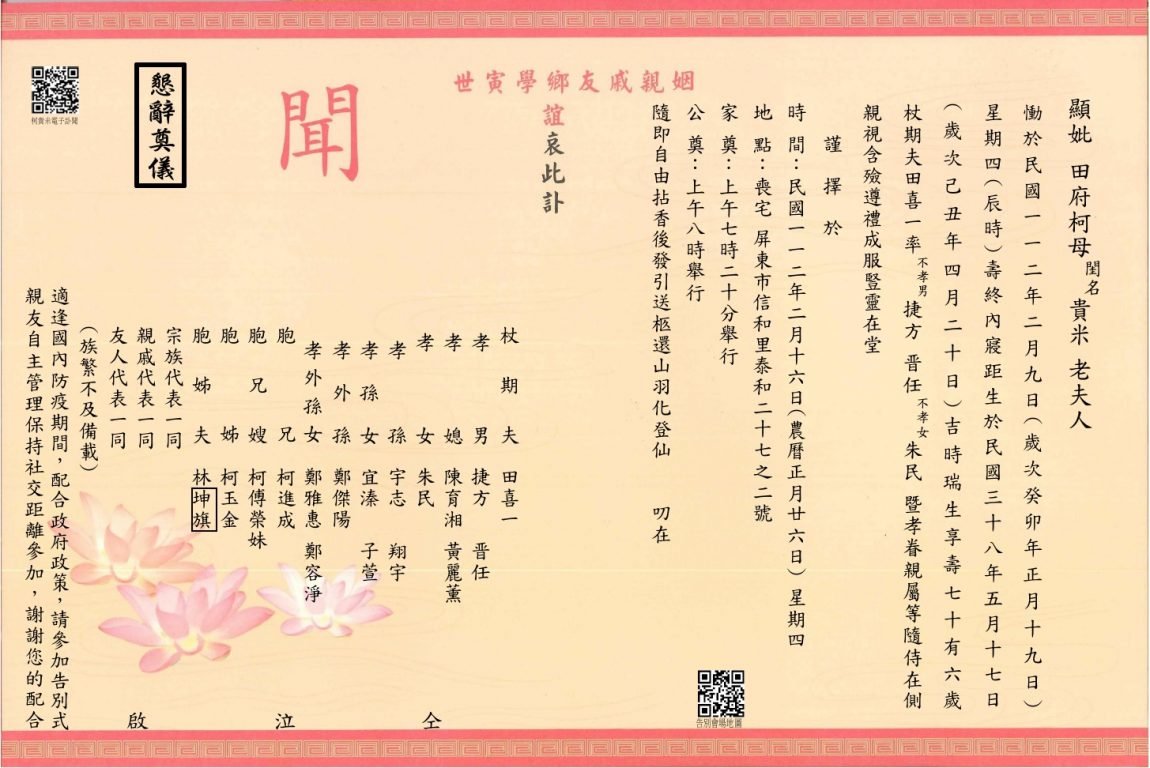 顯妣 田府柯母閨名貴米 老夫人
慟於民國一一二年二月九日(歲次癸卯年正月十九日)
星期四(辰時)壽終內寢距生於民國三十八年五月十七日
(歲次己丑年四月二十日)吉時瑞生享壽七十有六歲
杖期夫田喜一率不孝男捷方 晋任不孝女朱民 暨孝眷親屬等隨侍在側
親視含殮遵禮成服豎靈在堂
謹擇於
時間:民國一一二年二月十六日(農曆正月廿六日)星期四
地點:喪宅 屏東市信和里泰和二十七之二號
家奠:上午七時二十分舉行
公奠:上午八時舉行
隨即自由拈香後發引送柩還山羽化登仙 叨在
姻親戚友鄉學寅世
誼哀此訃
聞
懇辭奠儀
柯貴米電子訃聞
杖期夫 田喜一
孝男 捷方 晋任
孝媳 陳育湘 黃麗薰
孝女 朱民
孝孫 宇志 翔宇
孝孫女 宜溱 子萱
孝外孫 鄭傑陽
孝外孫女 鄭雅惠 鄭容淨
胞兄 柯進成
胞兄嫂 柯傅榮妹
胞姊 柯玉金
胞姊夫 林坤旗
宗族代表一同
親戚代表一同
友人代表一同
(族繁不及備載)
仝
泣
啟
適逢國內防疫期間,配合政府政策,請參加告別式
親友自主管理保持社交距離參加,謝謝您的配合
告別會場地圖